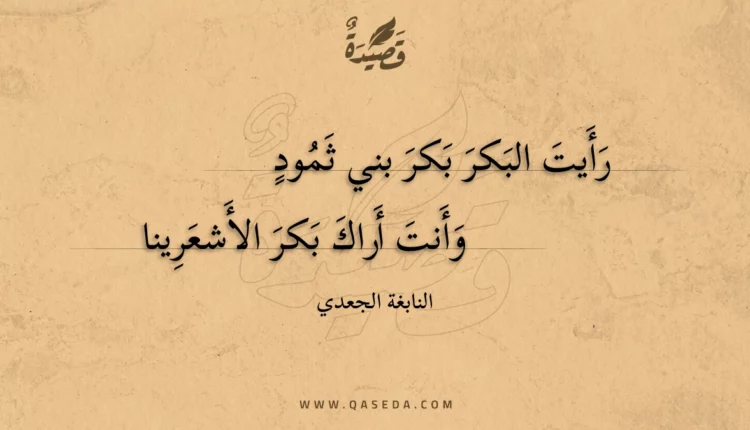 قَصِيدَةٌ
رَأَيتَ البَكرَ بَكرَ بني ثَمُودٍ
وَأَنتَ أَراكَ بَكرَ الأَشعَرِينا
النابغة الجعدي
WWW.QASEDA.COM